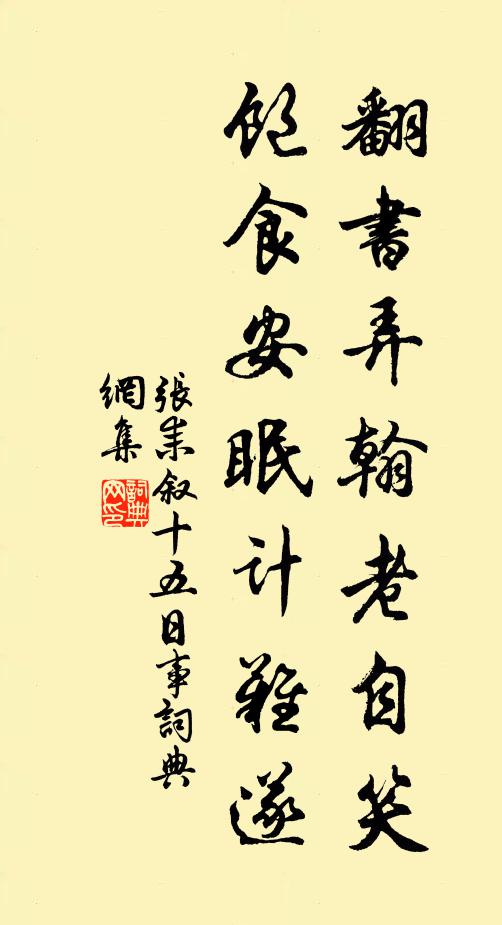 翻書弄翰老自笑
飽食安眠計難遂
張耒叙十五日事詞典
網集
詞典
网印